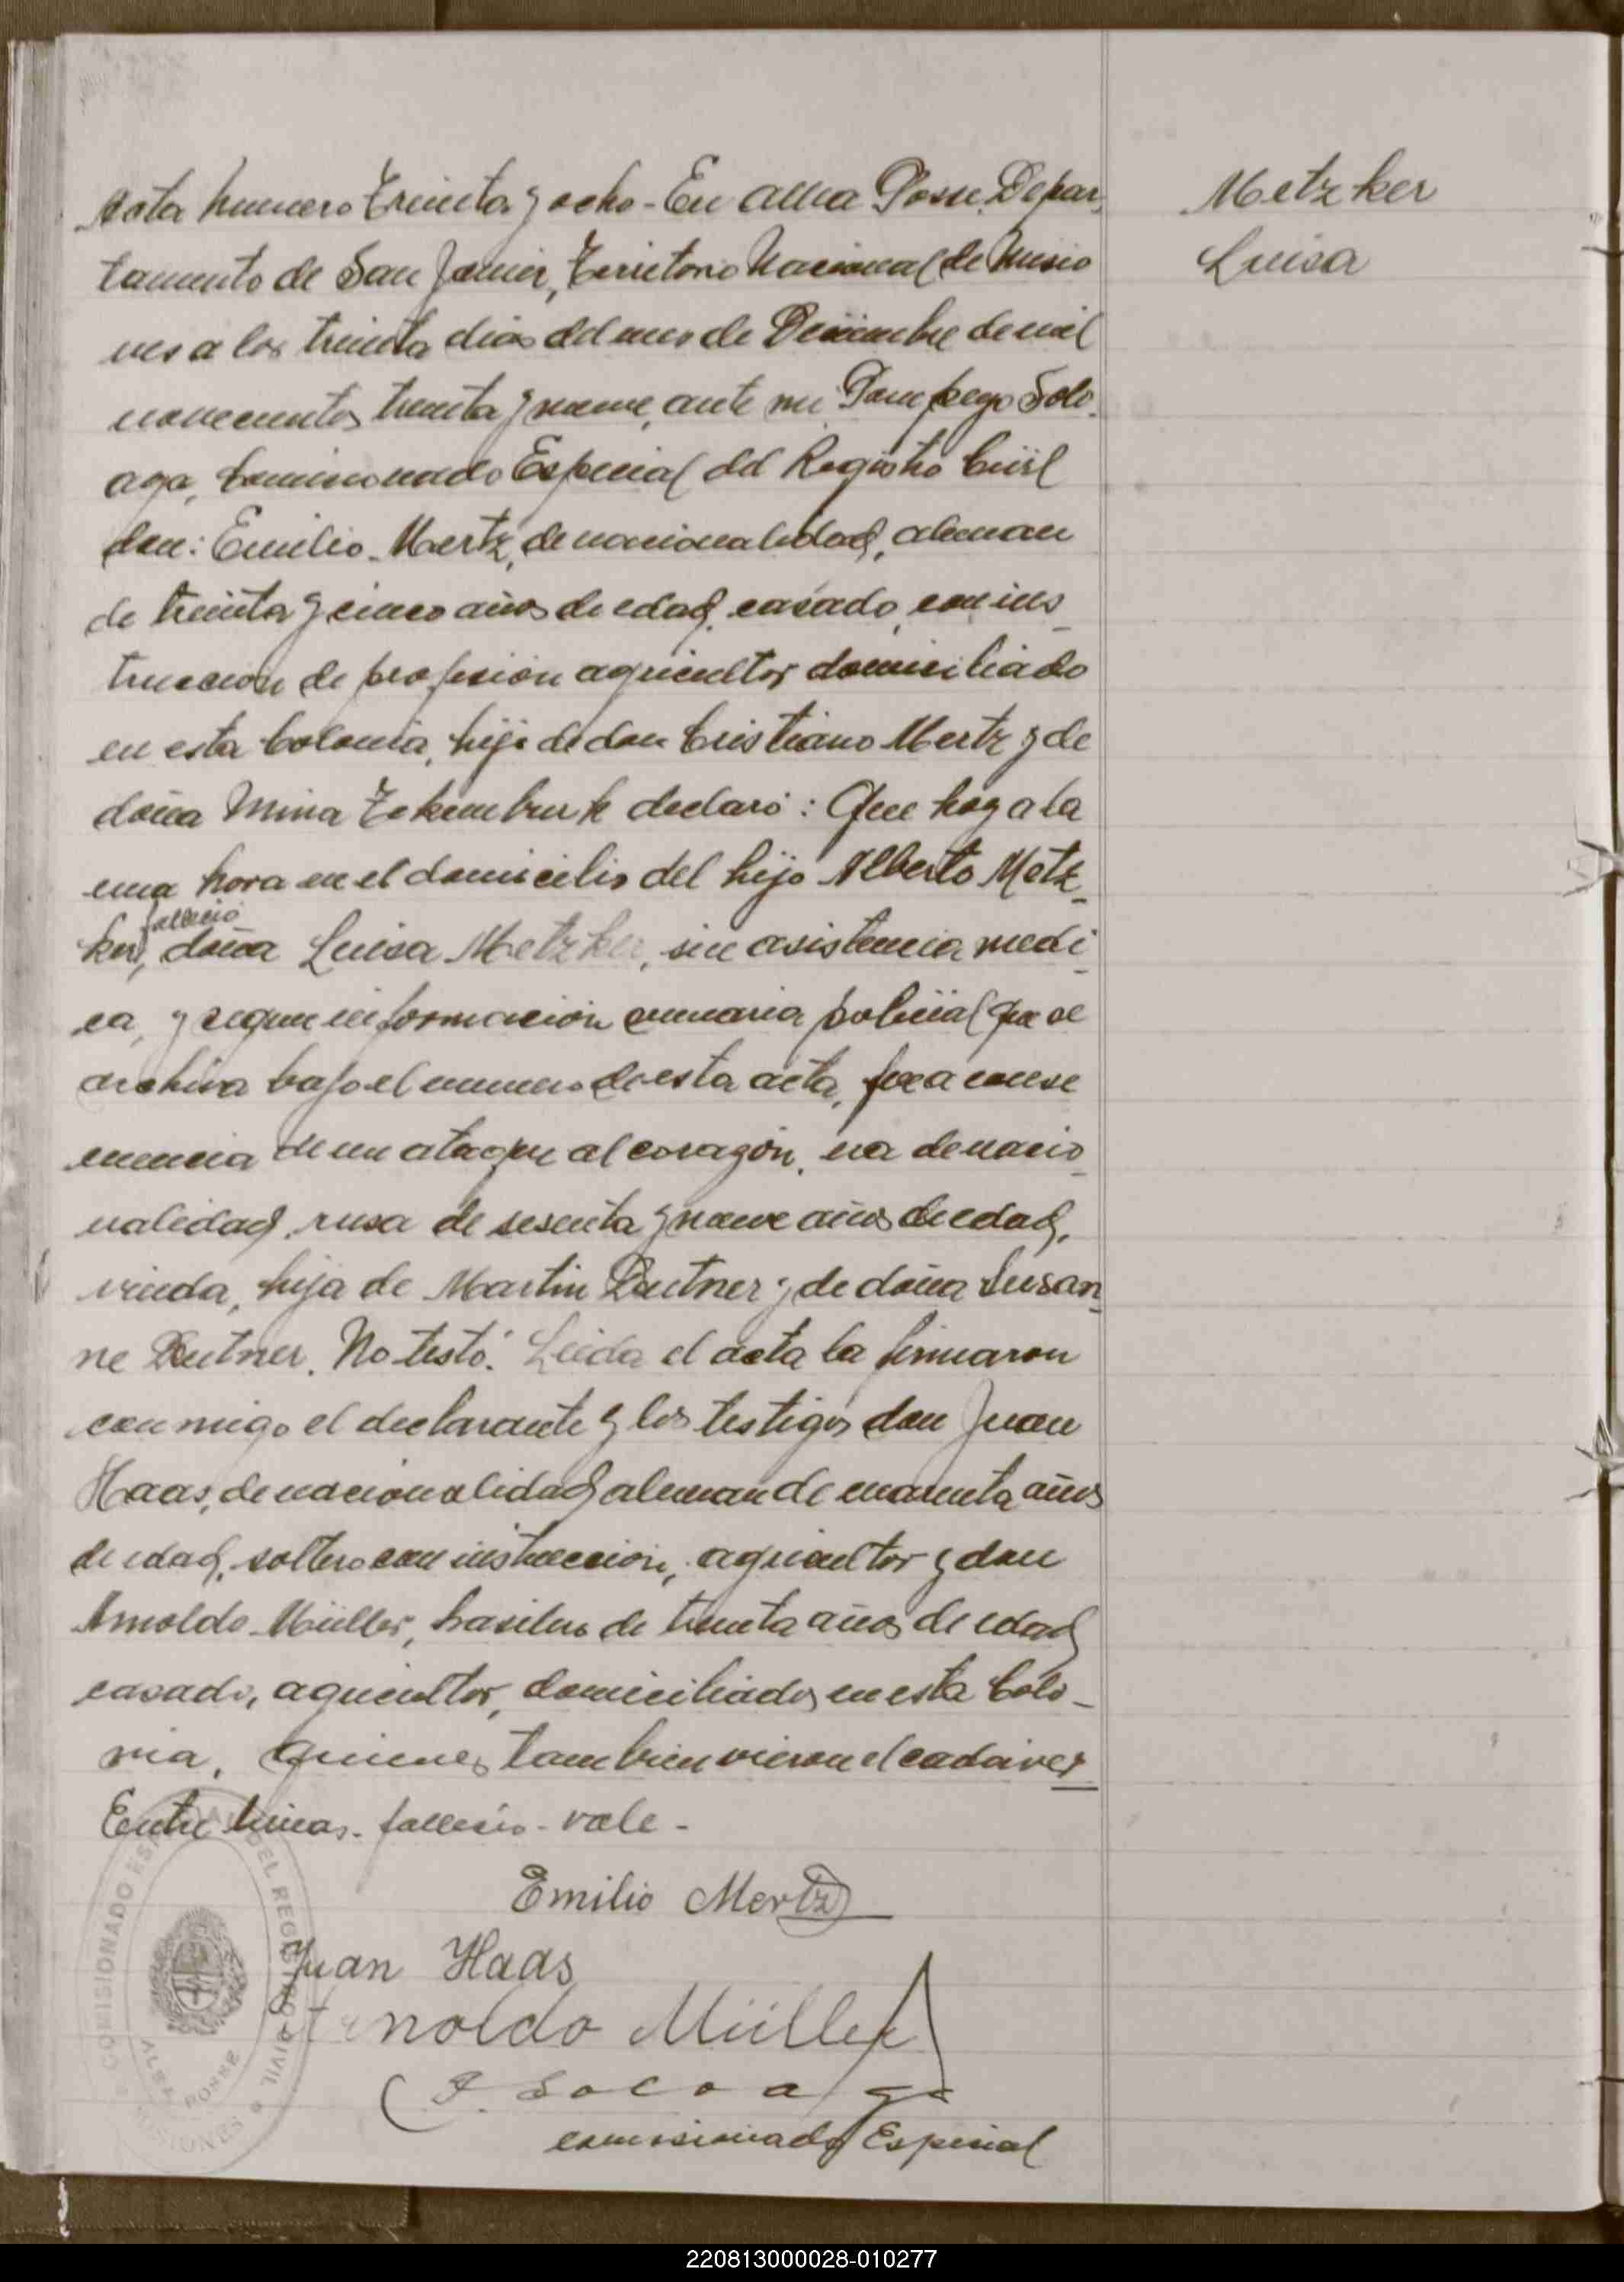 Acta numero treinta y ocho - En Alba Posse, Depar-
tamento de San Javier, Territorio Nacional de Misio
nes a los treinta dias del mes de Diciembre de mil
novecientos treinta y nueve, ante mi Pampeyo Solo-
aga, Comisionado Especial del Registro Civil
don: Emilio Mertz, de nacionalidad, aleman
de treinta y cinco años de edad, casado, con ins-
truccion de profesion agricultor domiciliado
en esta Colonia, hijo de don Cristiano Mertz y de
doña Mina declaró: Que hoy a la
una hora en el domicilio del hijo Alberto Metz-
falleció
ker, doña Luisa Metzker, sin asistencia medi-
ca, y segun informacion sumaria policial que se
archiva bajo el numero de esta acta, fue a conse
cuencia de un ataque al corazón, era de nacio-
nalidad, rusa de sesenta y nueve años de edad,
viuda, hija de Martin y de doña Susan-
ne No testó. Leida el acta la firmaron
conmigo el declarante y los testigos don Juan
Haas, de nacionalidad aleman de cuarenta años
de edad, soltero con instruccion, agricultor y don
Arnoldo Müller, brasilero de treinta años de edad
casado, agricultor, domiciliados en esta Colo-
nia, quienes tambien vieron el cadaver
Entre lineas - fallecio - vale -
Emilio Mertz
Juan Haas
Arnoldo Müller
P. Soloaga
comisionado Especial
Metzker
Luisa
COMISIONADO ESPECIAL DEL REGISTRO CIVIL
ALBA POSSE
MISIONES
220813000028-010277